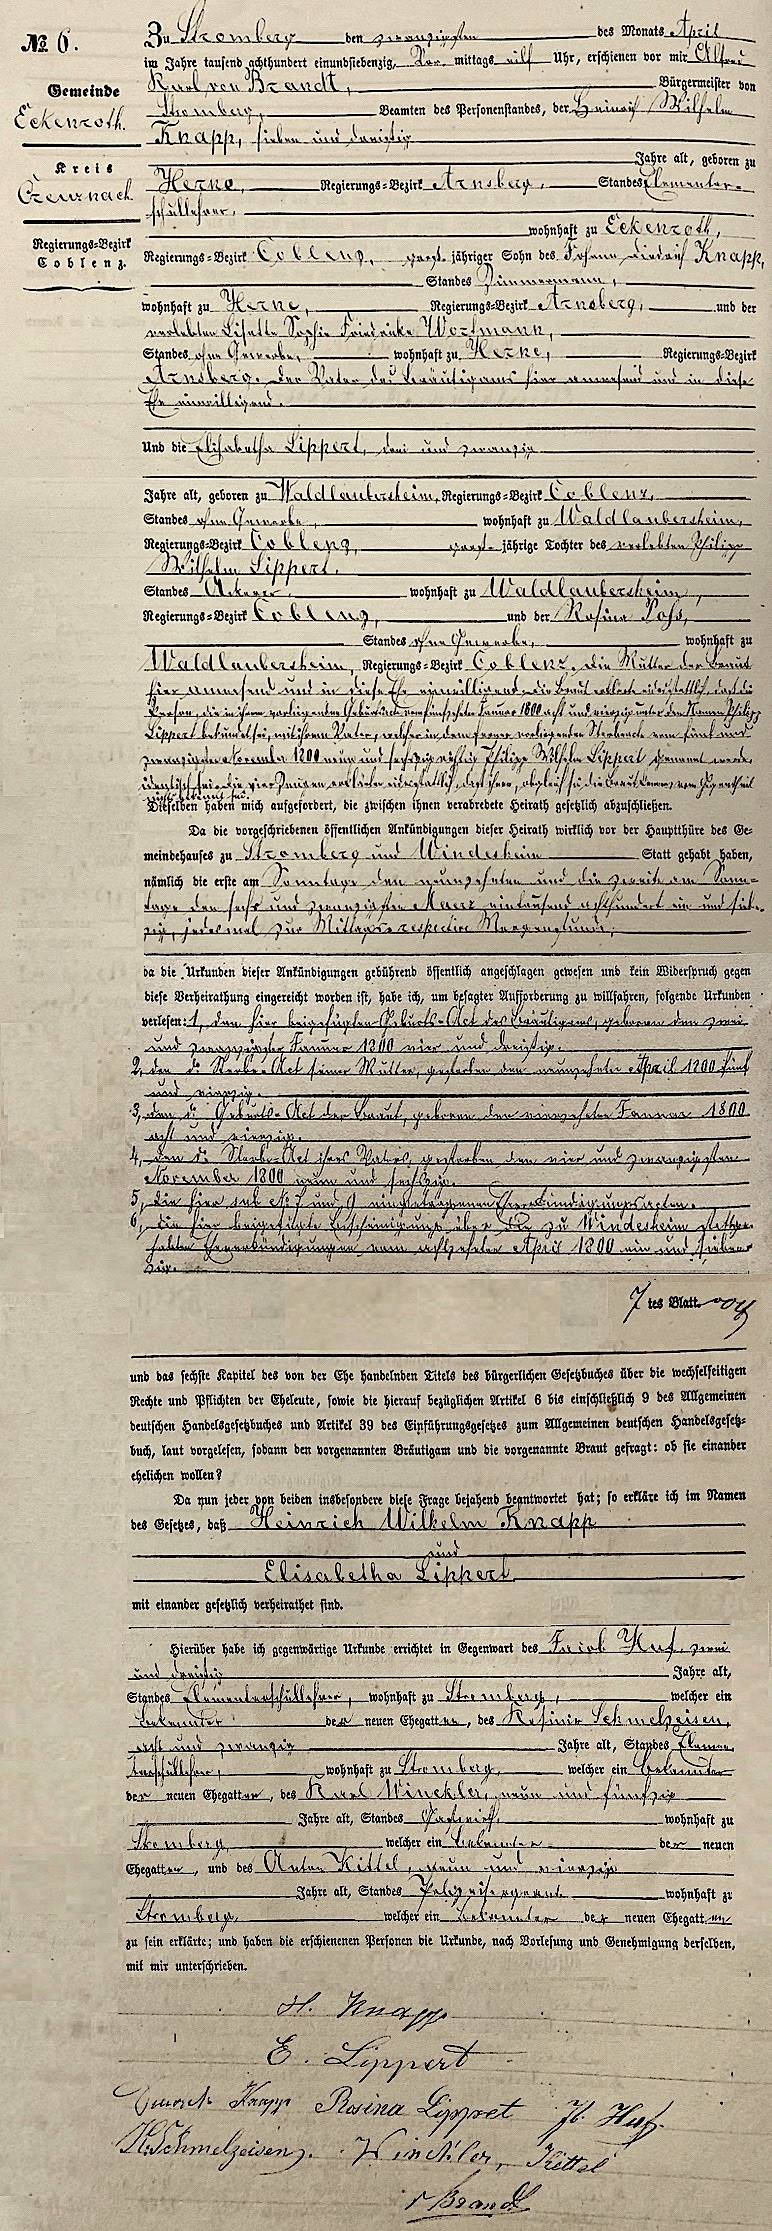 No. 6.
Gemeinde
Eckenroth.
Kreis
Creuznach.
Regierungs-Bezirk
Coblenz.
Zu Stromberg den zwanzigsten des Monats April
im Jahre tausend achthundert einundsiebenzig, Vor mittags eilf Uhr, erschienen vor mir Alfred
Karl von Brandt, Bürgermeister von
Stromberg, Beamten des Personenstandes, der Heinrich Wilhelm
Knapp, sieben und dreißig
Jahre alt, geboren zu
Herne, Regierungs-Bezirk Arnsberg, Standes Elementar-
schullehrer,
wohnhaft zu Eckenroth,
Regierungs-Bezirk Coblenz, groß- jähriger Sohn des Johann Diedrich Knapp,
Standes Zimmermann,
wohnhaft zu Herne, Regierungs-Bezirk Arnsberg, und der
verlebten Lisette Sophie Friedrike Wortmann,
Standes ohne Gewerbe, wohnhaft zu Herne, Regierungs-Bezirk
Arnsberg. Der Vater des Bräutigams hier anwesend und in diese
Ehe einwilligend.
Und die Elisabetha Lippert, drei und zwanzig
Jahre alt, geboren zu Waldlaubersheim, Regierungs-Bezirk Coblenz,
Standes ohne Gewerbe, wohnhaft zu Waldlaubersheim,
Regierungs-Bezirk Coblenz, groß- jährige Tochter des verlebten Philipp
Wilhelm Lippert,
Standes Ackerer, wohnhaft zu Waldlaubersheim,
Regierungs-Bezirk Coblenz, und der Rosina Poss,
Standes ohne Gewerbe, wohnhaft zu
Waldlaubersheim, Regierungs-Bezirk Coblenz, die Mutter der Braut
hier anwesend und in diese Ehe einwilligend. die Braut erklärte eidesstattlich, daß die
Person, die in ihrem vorliegenden Geburtsact vom fünfzehnten Januar 1800 acht und vierzig unter den Namen Philipp
Lippert bekundet sei, mit ihrem Vater, welcher in dem ferner vorliegenden Sterbeacte vom fünf und
zwanzigsten November 1800 neun und sechszig richtig Philipp Wilhelm Lippert genannt werde,
identisch sei. die vier Zeugen erklärten eidesstattlich, daß ihnen, obgleich sie die Brautleute kennen, vom Gegentheil
nichts bekannt sei.
Dieselben haben mich aufgefordert, die zwischen ihnen verabredete Heirath gesetzlich abzuschließen.
Da die vorgeschriebenen öffentlichen Ankündigungen dieser Heirath wirklich vor der Hauptthüre des Ge-
meindehauses zu Stromberg und Windesheim Statt gehabt haben,
nämlich die erste am Sonntage den neunzehnten und die zweite am Sonn-
tage den sechs und zwanzigsten Maerz eintausend achthundert ein und sieb-
zig, jedesmal zur Mittags- respective Morgenstunde,
da die Urkunden dieser Ankündigungen gebührend öffentlich angeschlagen gewesen und kein Widerspruch gegen
diese Verheirathung eingereicht worden ist, habe ich, um besagter Aufforderung zu willfahren, folgende Urkunden
verlesen: 1, den hier beigefügten Geburts-Act des Bräutigams, geboren den zwei
und zwanzigsten Januar 1800 vier und dreißig.
2, den do Sterbe-Act seiner Mutter, gestorben den neunzehnten April 1800 fünf
und vierzig.
3, den do Geburts-Act der Braut, geboren den vierzehnten Januar 1800
acht und vierzig.
4, den do Sterbe-Act ihres Vaters, gestorben den vier und zwanzigsten
November 1800 neun und sechszig.
5, die hier sub No 7 und 9 eingetragenen Eheverkündigungsacten.
6, die hier beigefügte Bescheinigung über die zu Windesheim stattge-
habten Eheverkündigungen vom achtzehnten April 1800 ein und sieben-
zig.
7 tes Blatt.
und das sechste Kapitel des von der Ehe handelnden Titels des bürgerlichen Gesetzbuches über die wechselseitigen
Rechte und Pflichten der Eheleute, sowie die hierauf bezüglichen Artikel 6 bis einschließlich 9 des Allgemeinen
deutschen Handelsgesetzbuches und Artikel 39 des Einführungsgesetzes zum Allgemeinen deutschen Handelsgesetz-
buch, laut vorgelesen, sodann den vorgenannten Bräutigam und die vorgenannte Braut gefragt: ob sie einander
ehelichen wollen?
Da nun jeder von beiden insbesondere diese Frage bejahend beantwortet hat; so erkläre ich im Namen
des Gesetzes, daß Heinrich Wilhelm Knapp
und
Elisabetha Lippert
mit einander gesetzlich verheirathet sind.
Hierüber habe ich gegenwärtige Urkunde errichtet in Gegenwart des Jacob Huf, zwei
und dreißig Jahre alt,
Standes Elementarschullehrer, wohnhaft zu Stromberg, welcher ein
Bekannter der neuen Ehegatten, des Schmelzeisen,
acht und zwanzig Jahre alt, Standes Elemen-
tarschullehrer, wohnhaft zu Stromberg, welcher ein Bekannter
der neuen Ehegatten, des Karl Winckler, neun und fünfzig
Jahre alt, Standes wohnhaft zu
Stromberg, welcher ein Bekannter der neuen
Ehegatten, und des Anton Kittel, neun und vierzig
Jahre alt, Standes Polizeisergeant wohnhaft zu
Stromberg, welcher ein Bekannter der neuen Ehegatten
zu sein erklärte; und haben die erschienenen Personen die Urkunde, nach Vorlesung und Genehmigung derselben,
mit mir unterschrieben.
H. Knapp
E. Lippert
Knapp Rosina Lippert Jb. Huf.
H. Schmelzeisen. Winckler, Kittel
v Brandt